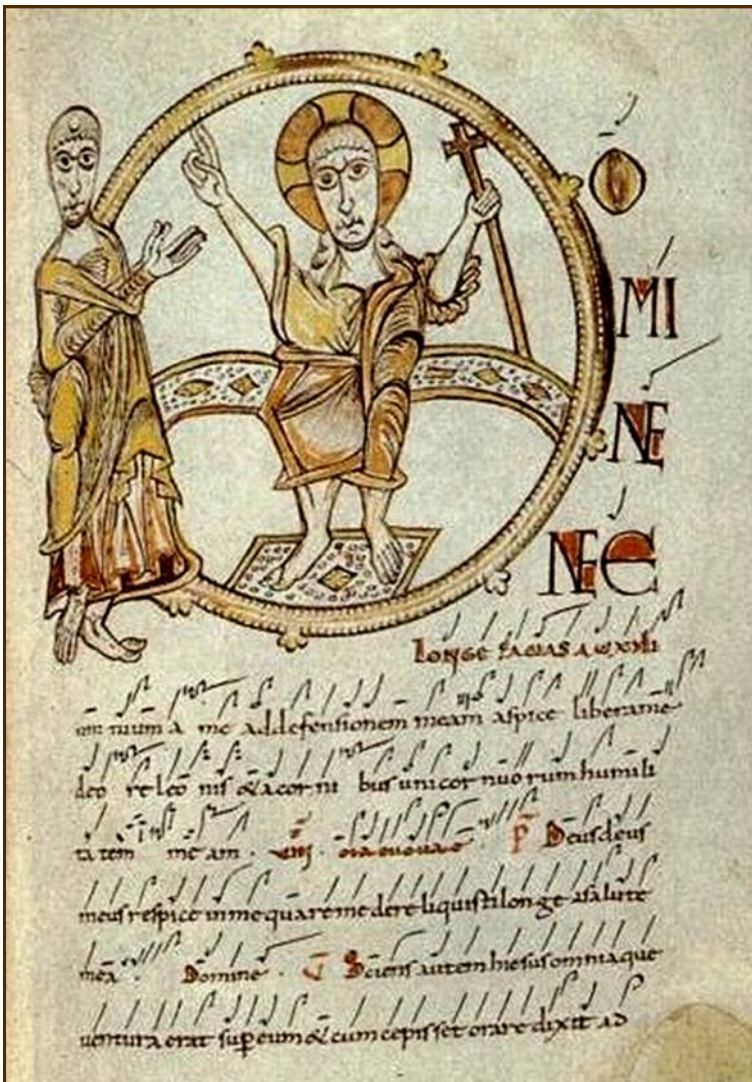 O
MI
NE
NE
longe facias auxili
um tuum a me addefensionem meam aspice liberame
deo re leo nis & acorni bus unicornuorumhumili
ta tem me am . VIII . P Deusdeus
meusrespice inme quaremedereliquistilonge asalute
mea . Domine . Sciens autemhiesusomniaque
uentura erat sup eum & cumcepisset orare dixit ad